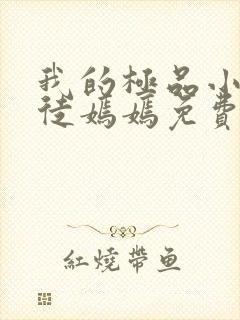 我的極品小
徒媽媽免費
紅燒帶魚